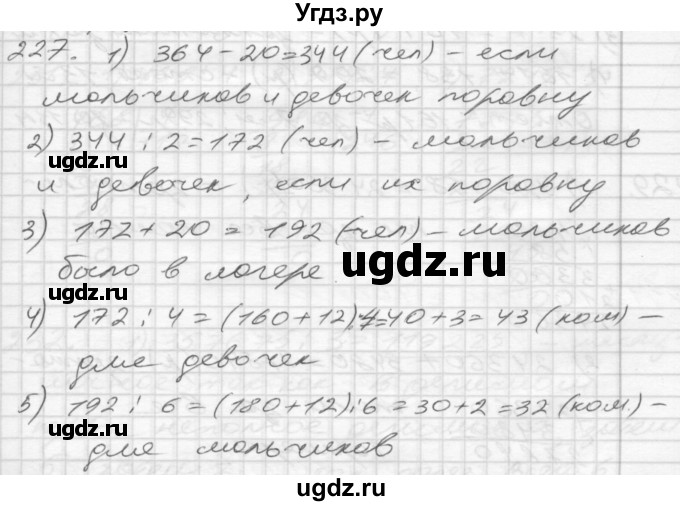 Угдз.ру
227. 1) 364 - 20 = 344 (чел) - если
мальчиков и девочек поровну
2) 344 : 2 = 172 (чел) - мальчиков
угдз.ру
и девочек, если их поровну
3) 172 + 20 = 192 (чел) - мальчиков
было в лагере
угдз.ру
4) 172 : 4 = (160 + 12) : 4 = 40 + 3 = 43 (ком) -
для девочек
5) 192 : 6 = (180 + 12) : 6 = 30 + 2 = 32 (ком.) -
угдз.ру
угдз.ру
для мальчиков
угдз.ру